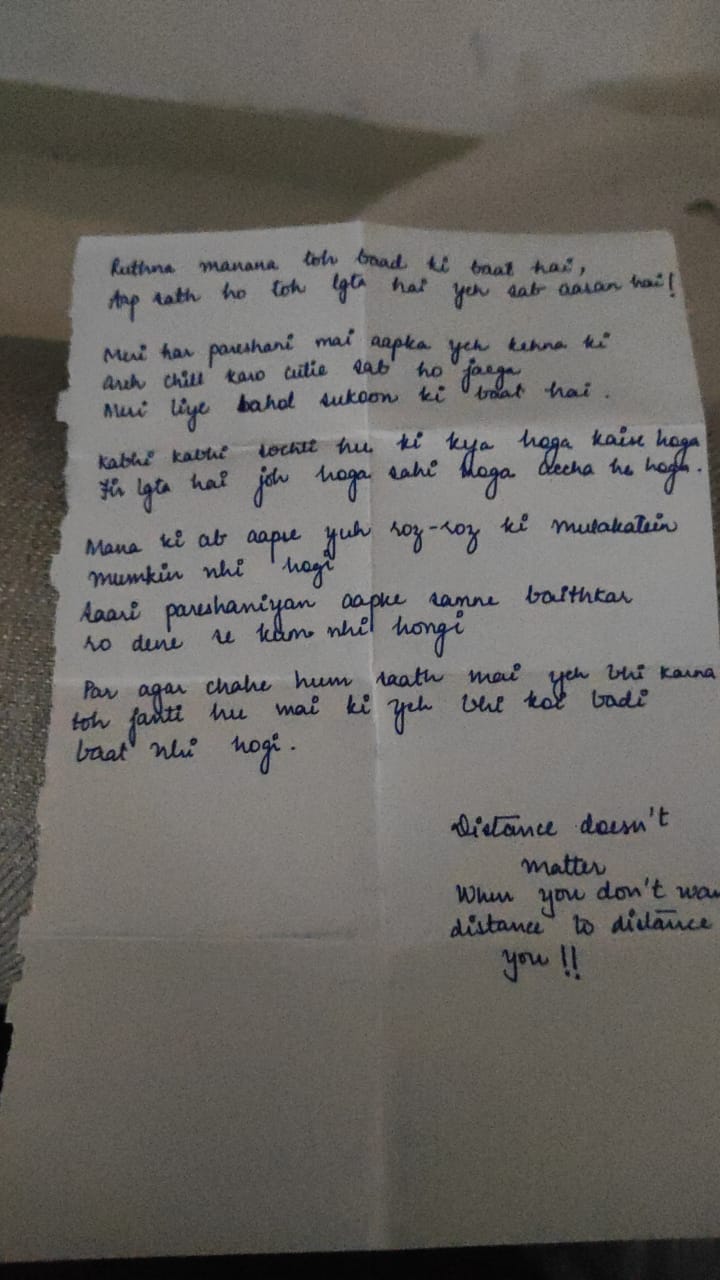 Ruthna manana toh baad ki baat hai,
Aap sath ho toh lgta hai yeh sab aasan hai!
Meri har pareshani mai aapka yeh kehna ki
areh chill karo cutie sab ho jaega
Meri liye bahot sukoon ki baat hai.
Kabhi kabhi sochti hu ki kya hoga kaise hoga
Fir lgta hai joh hoga sahi hoga accha he hoga.
Mana ki ab aapse yuh roz-roz ki mulakatein
mumkin nhi hogi
Saari pareshaniyan aapke samne baithkar
ro dene se kam nhi hongi
Par agar chahe hum saath mai yeh bhi karna
toh janti hu mai ki yeh bhi koi badi
baat nhi hogi.
Distance doesn't
matter
When you don't wa
distance to distance
you!!